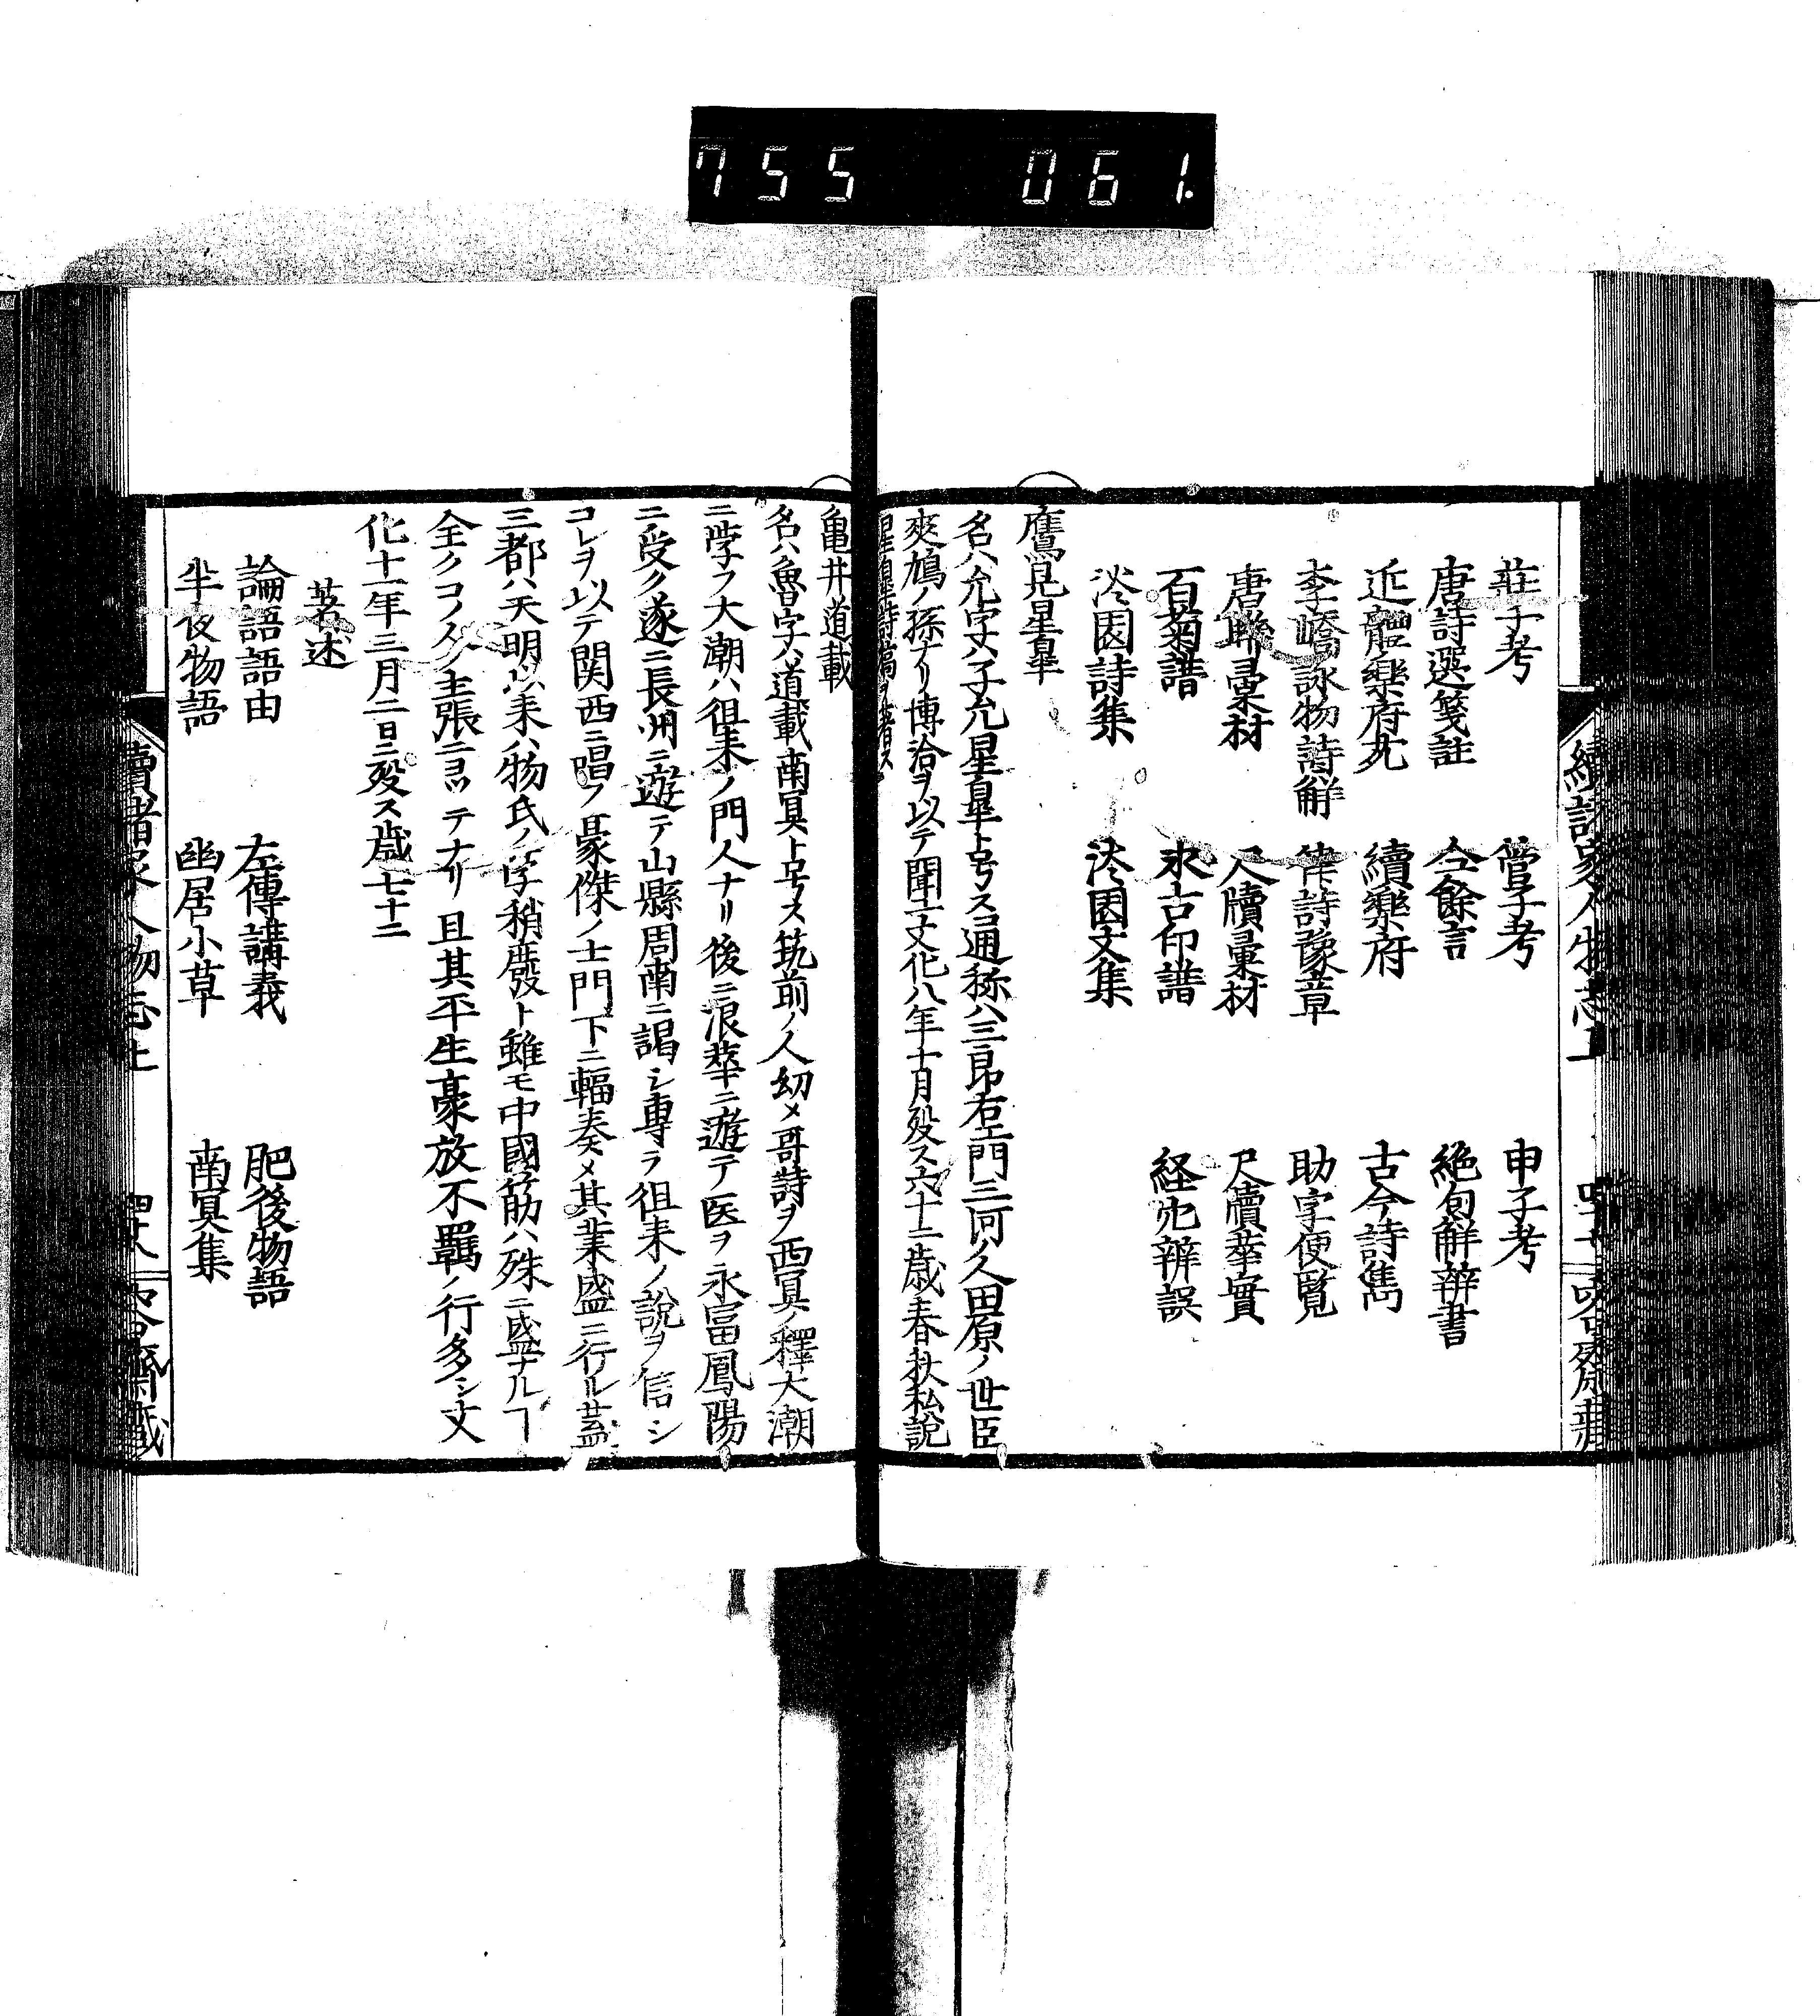 755 061.
莊子考 管子考 申子考
唐詩選箋註 仝餘言 絶句解辨書
近體樂府苑 續樂府 古今詩雋
李嶠詠物詩解 律詩豫章 助字便覧
唐聯彙材 尺牘彙材 尺牘華實
百菊譜 永古印譜 経史辨誤
淡園詩集 淡園文集
鷹見星皐
名ハ允字ハ子允星皐ト号ス通称ハ三郎右エ門三河ノ人田原ノ世臣
爽鳩ノ孫ナリ博洽ヲ以テ聞エ文化八年十月歿ス六十二歳春秋私説
星皐詩稿ヲ著ス
亀井道載
名ハ魯字ハ道載南冥ト号ス筑前ノ人幼メ哥詩ヲ西冥ノ釋大潮
ニ学フ大潮ハ徂来ノ門人ナリ後ニ浪華ニ遊テ医ヲ永富鳳陽
ニ受ク遂ニ長州ニ遊テ山縣周南ニ謁シ專ラ徂来ノ説ヲ信シ
コレヲ以テ関西ニ唱フ豪傑ノ士門下ニ輻奏メ其業盛ニ行ル蓋
三都ハ天明以来ハ物氏ノ学稍廢ト雖モ中國筋ハ殊ニ盛ナルヿ
全クコノ人ノ主張ニヨツテナリ且其平生豪放不羈ノ行多シ文
化十一年三月二日ニ歿ス歳七十二
著述
論語語由 左傳講義 肥後物語
半夜物語 幽居小草 南冥集
續諸家人物志上